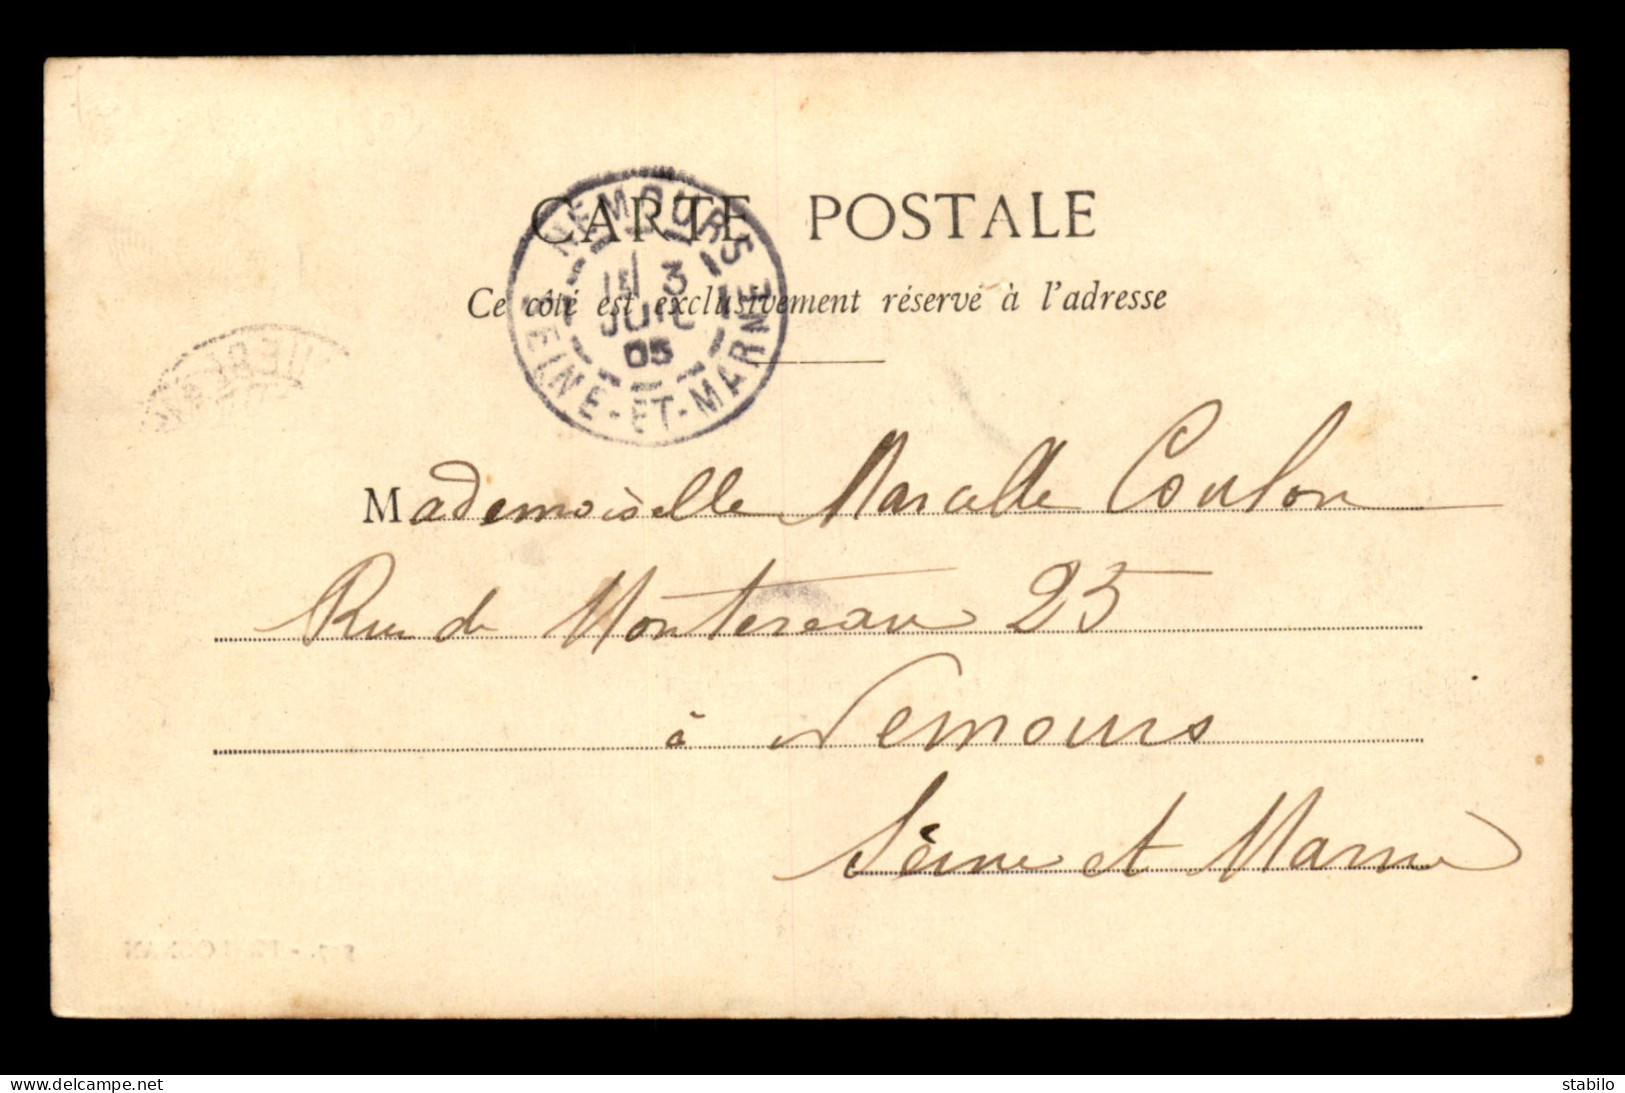 CARTE POSTALE
Ce côté est exclusivement réservé à l'adresse
NEMOURS
3
JUIL
05
SEINE-ET-MARNE
Mademoiselle Marcelle Coulon
Rue de Montereau 25
à Nemours
Seine et Marne
www.delcampe.net
stabilo